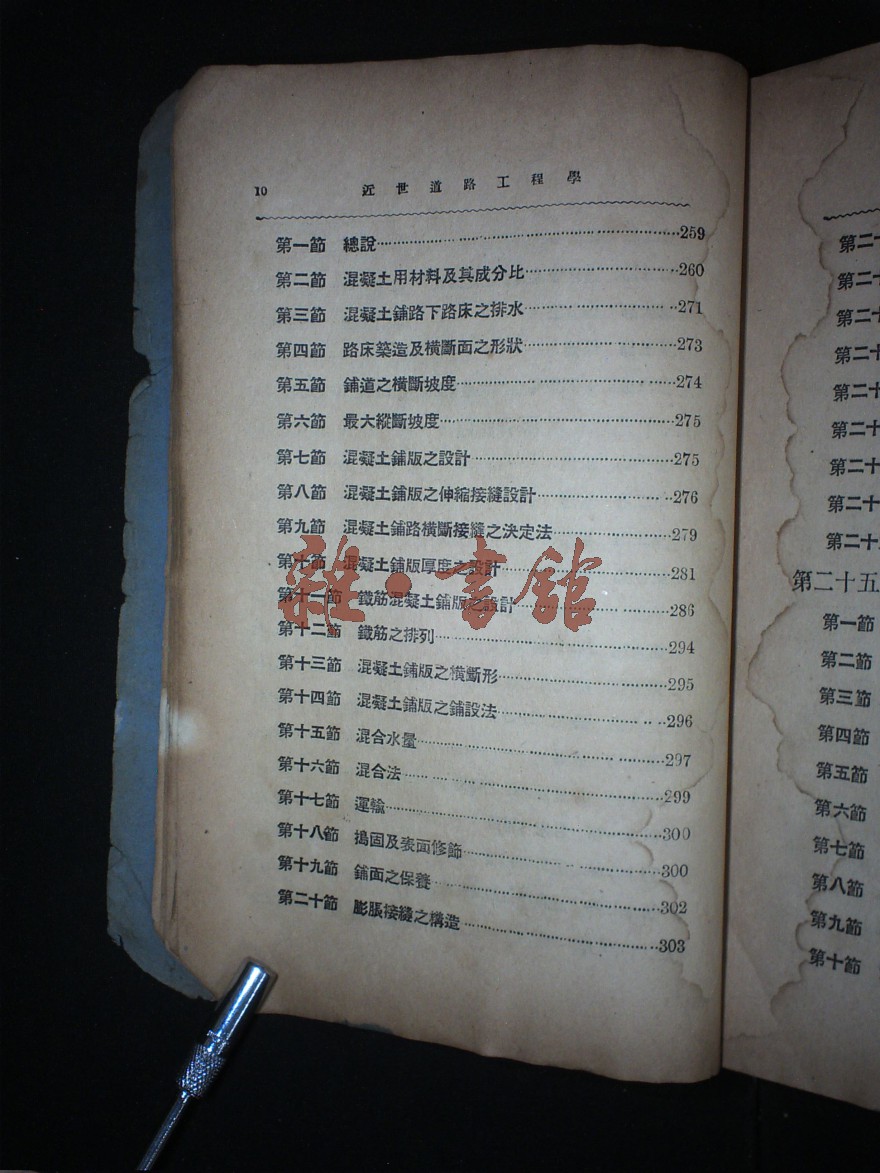 10 近世道路工程學
第一節 總說……259
第二節 混凝土用材料及其成分比……260
第三節 混凝土鋪路下路床之排水……271
第四節 路床築造及橫斷面之形狀……273
第五節 鋪道之橫斷坡度……274
第六節 最大縱斷坡度……275
第七節 混凝土鋪版之設計……275
第八節 混凝土鋪版之伸縮接縫設計……276
第九節 混凝土鋪路橫斷接縫之決定法……279
第十節 混凝土鋪版厚度之設計……281
第十一節 鐵筋混凝土鋪版之設計……286
第十二節 鐵筋之排列……294
第十三節 混凝土鋪版之橫斷形……295
第十四節 混凝土鋪版之鋪設法……296
第十五節 混合水量……297
第十六節 混合法……299
第十七節 運輸……300
第十八節 搗固及表面修飾……300
第十九節 鋪面之保養……302
第二十節 膨脹接縫之構造……303
雜·書館
第二十
第二十
第二十
第二十
第二十
第二十
第二十
第二十
第二十
第二十五
第一節
第二節
第三節
第四節
第五節
第六節
第七節
第八節
第九節
第十節